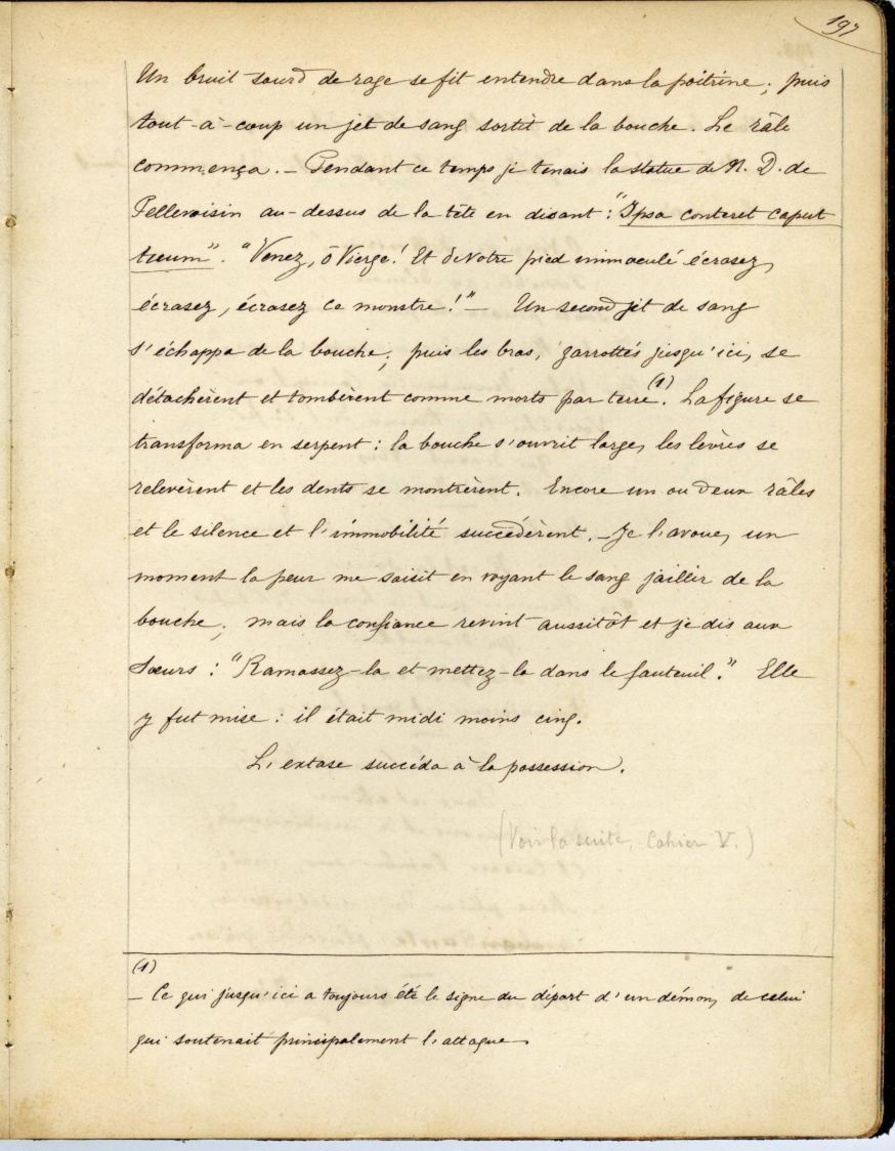 197
Un bruit sourd de rage se fit entendre dans la poitrine ; puis
tout-à-coup un jet de sang sortit de la bouche. Le râle
commença. – Pendant ce temps je tenais la statue de N. D. de
Pellevoisin au-dessus de la tête en disant : "Ipsa conteret caput
tuum". "Venez, ô Vierge ! Et de votre pied immaculé écrasez,
écrasez, écrasez ce monstre !" – Un second jet de sang
s'échappa de la bouche ; puis les bras, garrottés jusqu'ici, se
détachèrent et tombèrent comme morts par terre (1). La figure se
transforma en serpent : la bouche s'ouvrit large, les lèvres se
relevèrent et les dents se montrèrent. Encore un ou deux râles
et le silence et l'immobilité succédèrent. – Je l'avoue, un
moment la peur me saisit en voyant le sang jaillir de la
bouche ; mais la confiance revint aussitôt et je dis aux
Sœurs : "Ramassez-la et mettez-la dans le fauteuil." Elle
y fut mise : il était midi moins cinq.
L'extase succéda à la possession.
(Voir la suite, Cahier V.)
(1)
– Ce qui jusqu'ici a toujours été le signe du départ d'un démon, de celui
qui soutenait principalement l'attaque